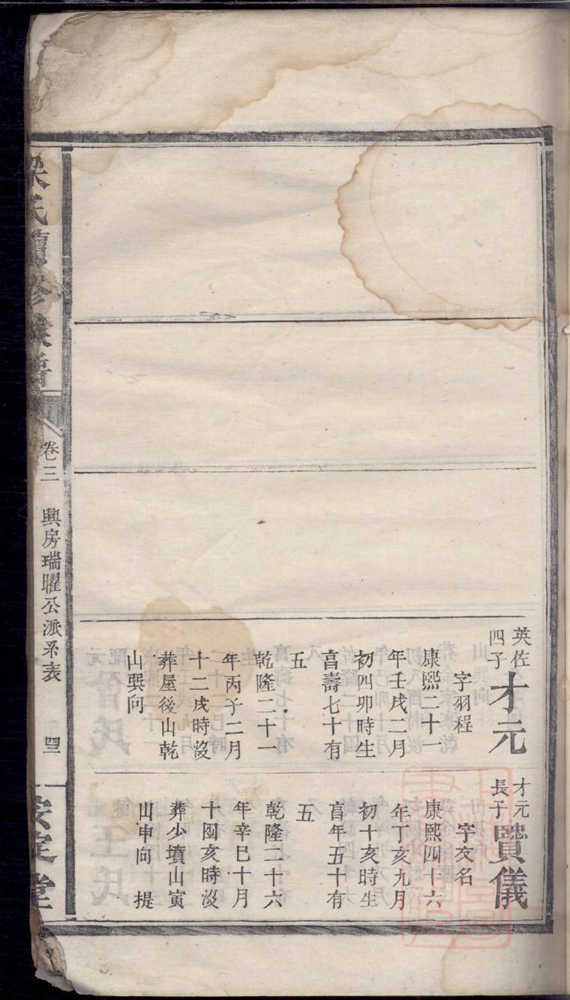 英佐
四子
才元
字羽程
康熙二十一
年壬戌二月
初四卯時生
富壽七十有
五
乾隆二十一
年丙子二月
十二戌時沒
葬屋後山乾
山巽向
才元
長子
寶儀
字友名
康熙四十六
年丁亥九月
初十亥時生
富年五十有
五
乾隆二十六
年辛巳十月
十四亥時沒
葬少墳山寅
山申向 提
氏續修族譜
卷三
興房瑞耀公派系表
四三
堂